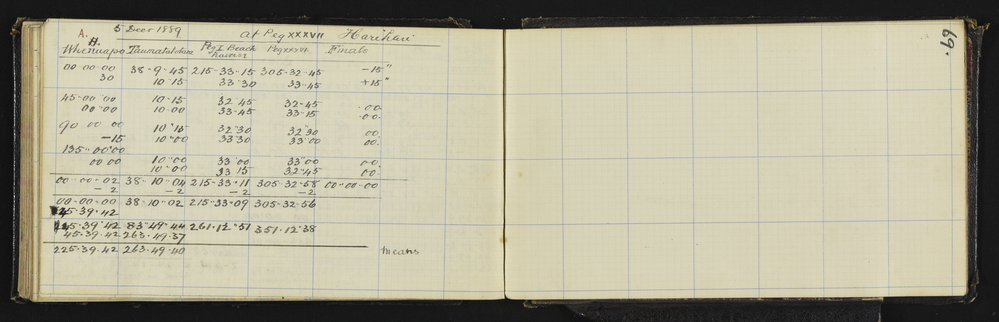 A. 5 Decr 1889 at Peg XXXVII Harihari
H.
Whenuapo Peg I Beach Peg XXXVI Finals
00 00 00 38-9-45 215-33-15 305-32-45 -15"
30 10 15 33 30 33-45 +15"
45-00 00 10-15 32 45 32-45 .00
00 00 10-00 33-45 33-15 .00.
90 00 00 10"15 32"30 32"30 00
-15 10"00 33 30 33"00 00.
135"00"00
00 00 10"00 33"00 33"00 00.
10"00 33 15 32"45 00.
00-00-02 38-10-04 215-33-11 305-32-58 00-00-00
-2 -2 -2 -2
00-00-00 38-10-02 215-33-09 305-32-56
45.39.42
45.39"42 83"49"44 261.12"51 351.12"38
45.39.42 263.49.37
225.39.42 263.49.40 means
69.